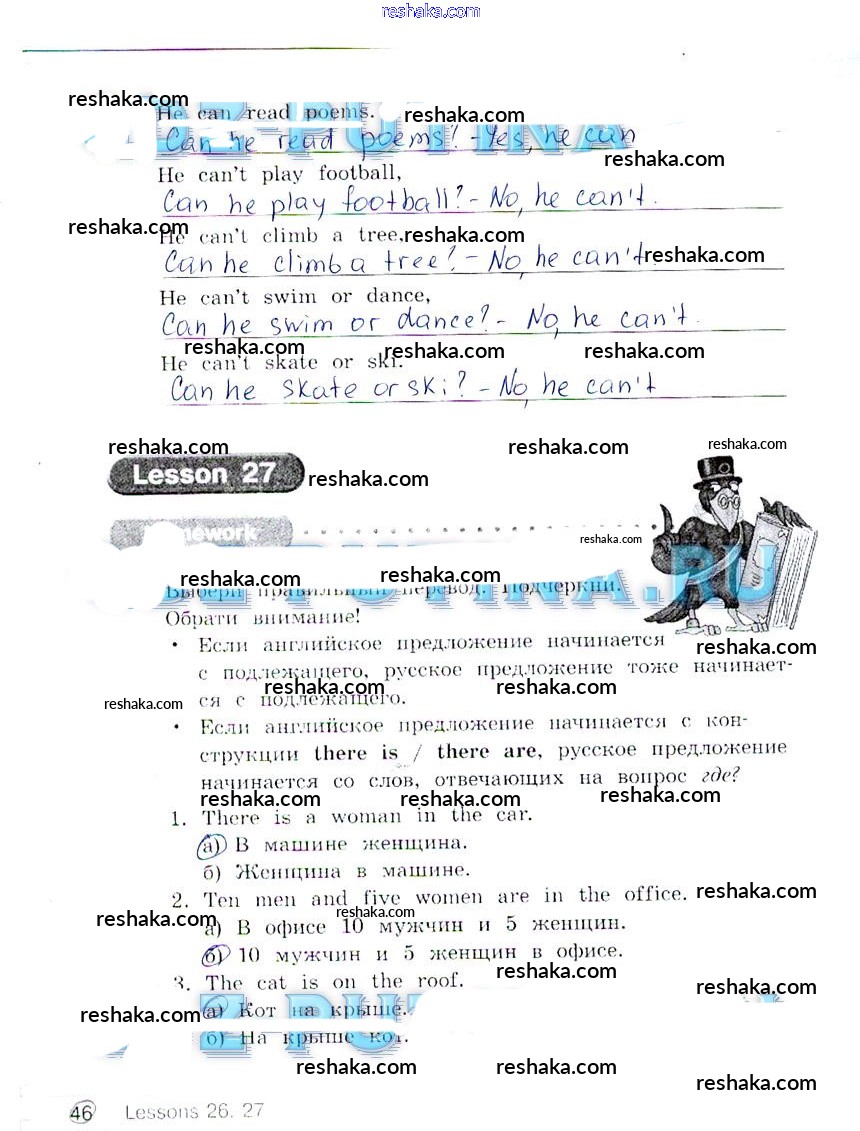 reshaka.com
reshaka.com
He can read poems.
reshaka.com
Can he read poems? - Yes, he can
reshaka.com
He can't play football,
Can he play football? - No, he can't.
reshaka.com
He can't climb a tree,
reshaka.com
Can he climb a tree? - No, he can't.
reshaka.com
He can't swim or dance,
Can he swim or dance? - No, he can't.
reshaka.com reshaka.com reshaka.com
He can't skate or ski.
Can he skate or ski? - No, he can't
reshaka.com reshaka.com reshaka.com
Lesson 27
reshaka.com
reshaka.com
PUTINA.RU
reshaka.com reshaka.com
Выбери правильный перевод. Подчеркни.
Обрати внимание!
• Если английское предложение начинается
reshaka.com
с подлежащего, русское предложение тоже начинает-
reshaka.com reshaka.com
reshaka.com
ся с подлежащего.
• Если английское предложение начинается с кон-
струкции there is / there are, русское предложение
начинается со слов, отвечающих на вопрос где?
reshaka.com reshaka.com reshaka.com
1. There is a woman in the car.
а) В машине женщина.
б) Женщина в машине.
2. Ten men and five women are in the office.
reshaka.com
reshaka.com reshaka.com
а) В офисе 10 мужчин и 5 женщин.
б) 10 мужчин и 5 женщин в офисе.
reshaka.com
3. The cat is on the roof.
reshaka.com
reshaka.com
а) Кот на крыше.
б) На крыше кот.
reshaka.com reshaka.com
reshaka.com
46 Lessons 26, 27